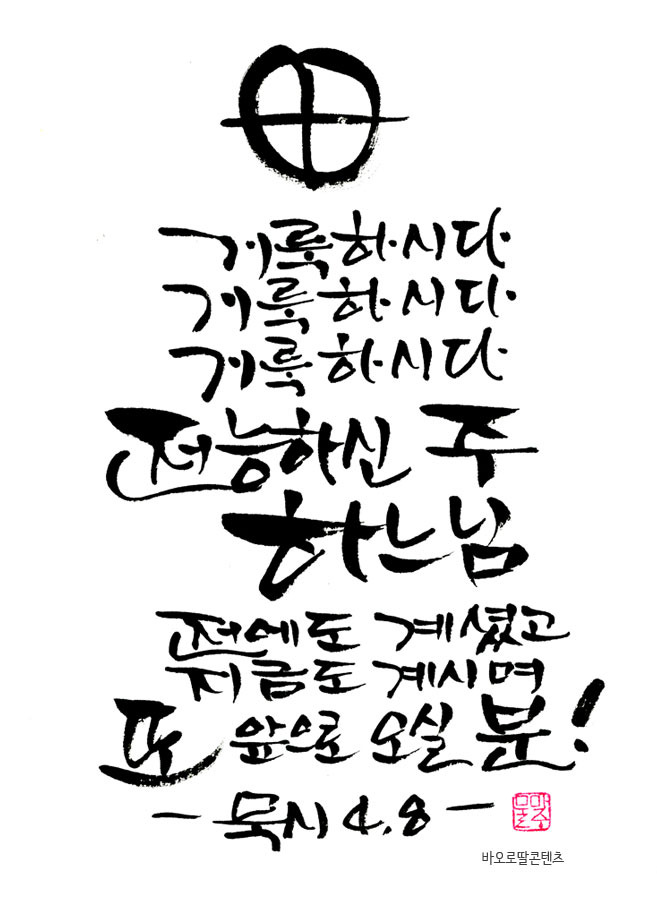 거룩하시다
거룩하시다
거룩하시다
전능하신 주
하느님
전에도 계셨고
지금도 계시며
또 앞으로 오실 분!
- 묵시 4,8 -
바오로딸콘텐츠